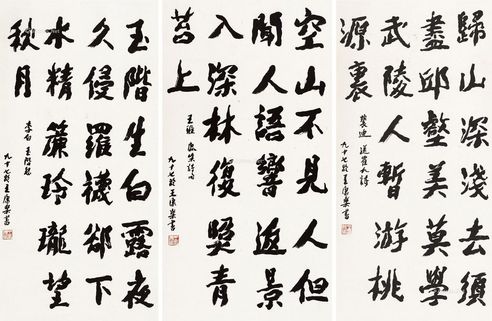 歸山深淺去須
盡邱壑美莫學
武陵人暫游桃
源裏
裴迪 送崔九詩
九十七叟王康樂書
空山不見人但
聞人語響返景
入深林復照青
苔上
王維 鹿柴詩句
九十七叟王康樂書
玉階生白露夜
久侵羅襪卻下
水精簾玲瓏望
秋月
李白 玉階怨
九十七叟王康樂書